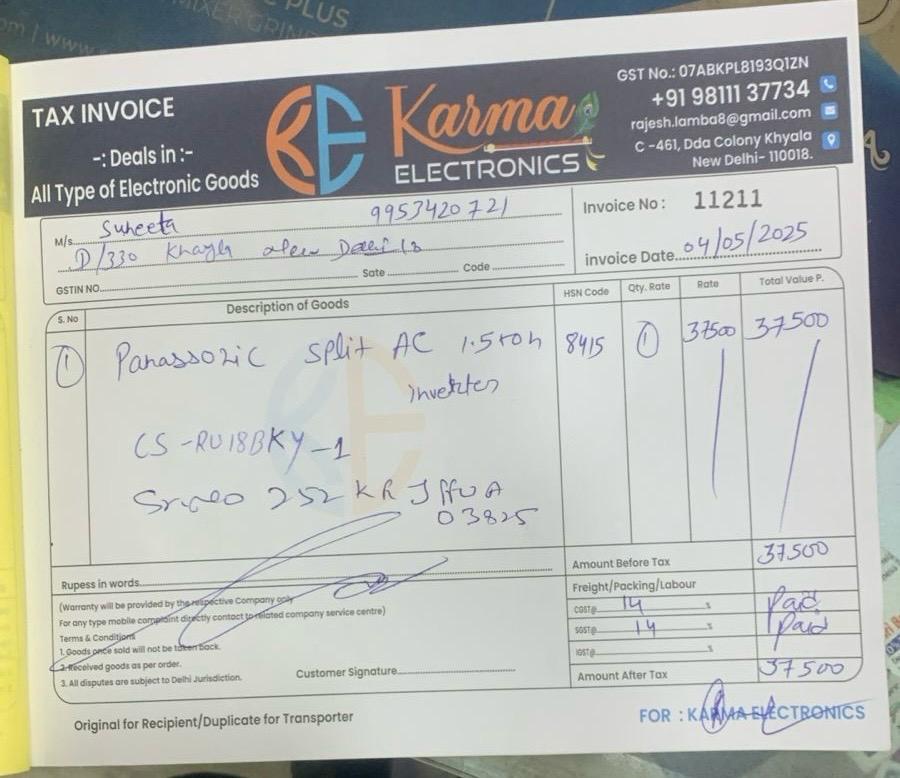 PLUS
MIXER GRIN
om | www.
TAX INVOICE
-: Deals in :-
All Type of Electronic Goods
KE
Karma
ELECTRONICS
GST No.: 07ABKPL8193Q1ZN
+91 98111 37734
rajesh.lamba8@gmail.com
C -461, Dda Colony Khyala
New Delhi- 110018.
M/s. Suneeta 9953420721
D/330 Khayla New Delhi 18
Sate Code
GSTIN NO.
Invoice No: 11211
invoice Date. 04/05/2025
S. No Description of Goods HSN Code Qty. Rate Rate Total Value P.
1 Panassonic split AC 1.5 ton 8415 1 37500 37500
inverter
CS-RU18BKY-1
252 KR
03825
Amount Before Tax 37500
Rupess in words.
Freight/Packing/Labour
(Warranty will be provided by the respective Company only
For any type mobile complaint directly contact to related company service centre)
CGST@ 14 % Paid
SGST@ 14 % Paid
IGST@ %
Terms & Conditions
1. Goods once sold will not be taken back.
2. Received goods as per order.
3. All disputes are subject to Delhi Jurisdiction.
Customer Signature
Amount After Tax 37500
Original for Recipient/Duplicate for Transporter
FOR : KARMA ELECTRONICS